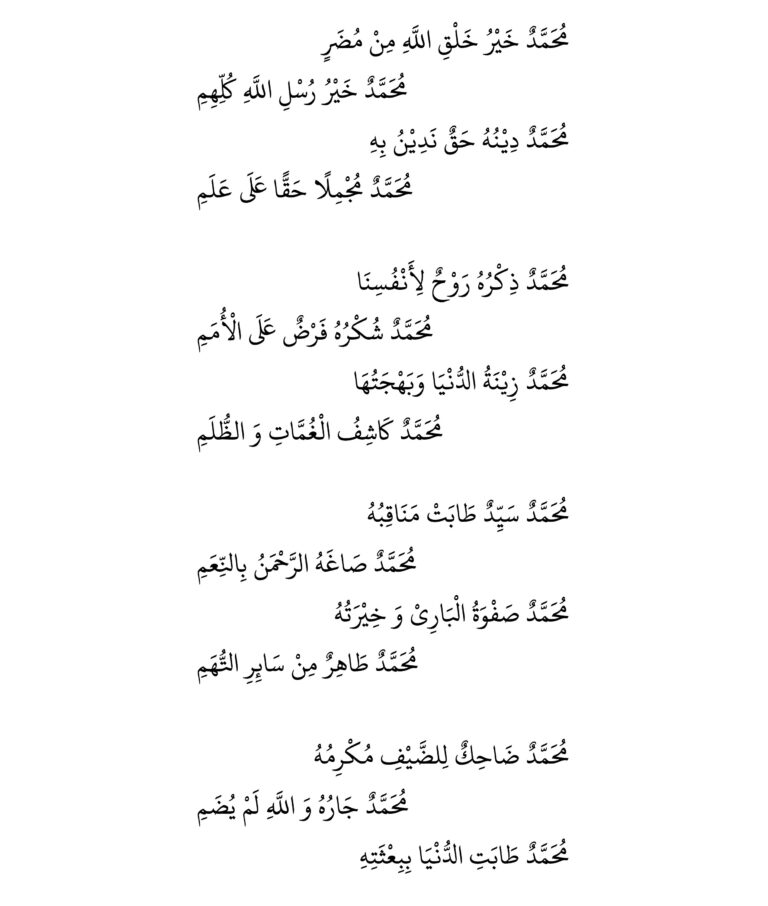 مُحَمَّدٌ خَيْرُ خَلْقِ اللَّهِ مِنْ مُضَرٍ
مُحَمَّدٌ خَيْرُ رُسْلِ اللَّهِ كُلِّهِمِ
مُحَمَّدٌ دِيْنُهُ حَقٌّ نَدِيْنُ بِهِ
مُحَمَّدٌ مُجْمِلًا حَقًّا عَلَى عَلَمِ
مُحَمَّدٌ ذِكْرُهُ رَوْحٌ لِأَنْفُسِنَا
مُحَمَّدٌ شُكْرُهُ فَرْضٌ عَلَى الْأُمَمِ
مُحَمَّدٌ زِيْنَةُ الدُّنْيَا وَبَهْجَتُهَا
مُحَمَّدٌ كَاشِفُ الْغُمَّاتِ وَ الظُّلَمِ
مُحَمَّدٌ سَيِّدٌ طَابَتْ مَنَاقِبُهُ
مُحَمَّدٌ صَاغَهُ الرَّحْمَنُ بِالنِّعَمِ
مُحَمَّدٌ صَفْوَةُ الْبَارِىْ وَ خِيْرَتُهُ
مُحَمَّدٌ طَاهِرٌ مِنْ سَايِرِ التُّهَمِ
مُحَمَّدٌ ضَاحِكٌ لِلضَّيْفِ مُكْرِمُهُ
مُحَمَّدٌ جَارُهُ وَ اللَّهِ لَمْ يُضَمِ
مُحَمَّدٌ طَابَتِ الدُّنْيَا بِبِعْثَتِهِ